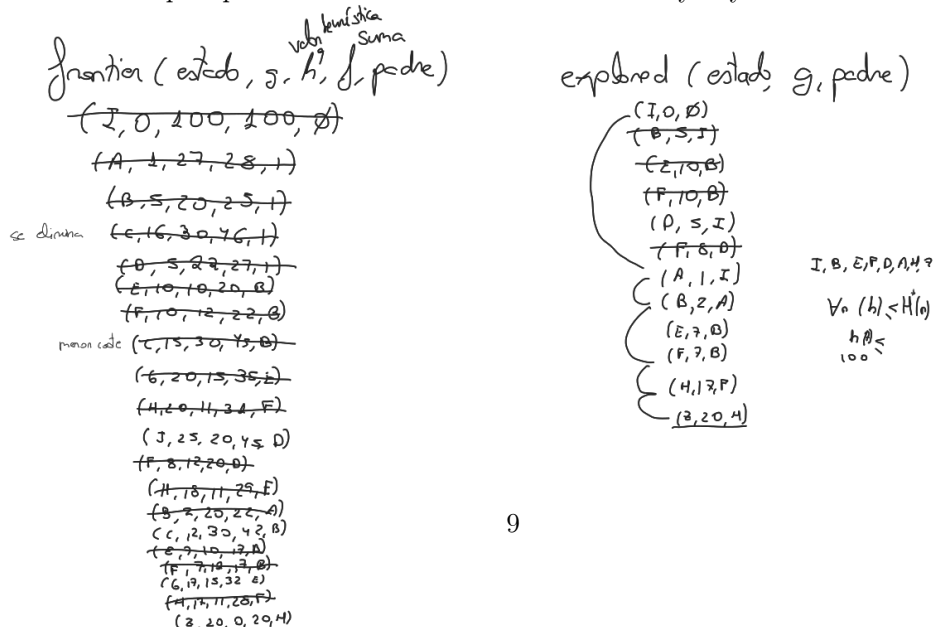 valor heurística
suma
frontier (estado, g, h, f, padre)
(I, 0, 100, 100, Ø)
(A, 1, 27, 28, I)
(B, 5, 20, 25, I)
se elimina (C, 16, 30, 46, I)
(D, 5, 22, 27, I)
(E, 10, 10, 20, B)
(F, 10, 12, 22, B)
menor coste (C, 15, 30, 45, B)
(G, 20, 15, 35, E)
(H, 20, 11, 31, F)
(J, 25, 20, 45 D)
(F, 8, 12, 20, D)
(H, 18, 11, 29, F)
(B, 2, 20, 22, A)
(C, 12, 30, 42, B)
(E, 7, 10, 17, B)
(F, 7, 12, 17, B)
(G, 17, 15, 32 E)
(H, 17, 11, 28, F)
(Z, 20, 0, 20, H)
explored (estado, g, padre)
(I, 0, Ø)
(B, 5, I)
(E, 10, B)
(F, 10, B)
(D, 5, I)
(F, 8, D)
(A, 1, I)
(B, 2, A)
(E, 7, B)
(F, 7, B)
(H, 17, F)
(Z, 20, H)
I, B, E, F, D, A, H, Z
∀n (h) ≤ H*(n)
100
9